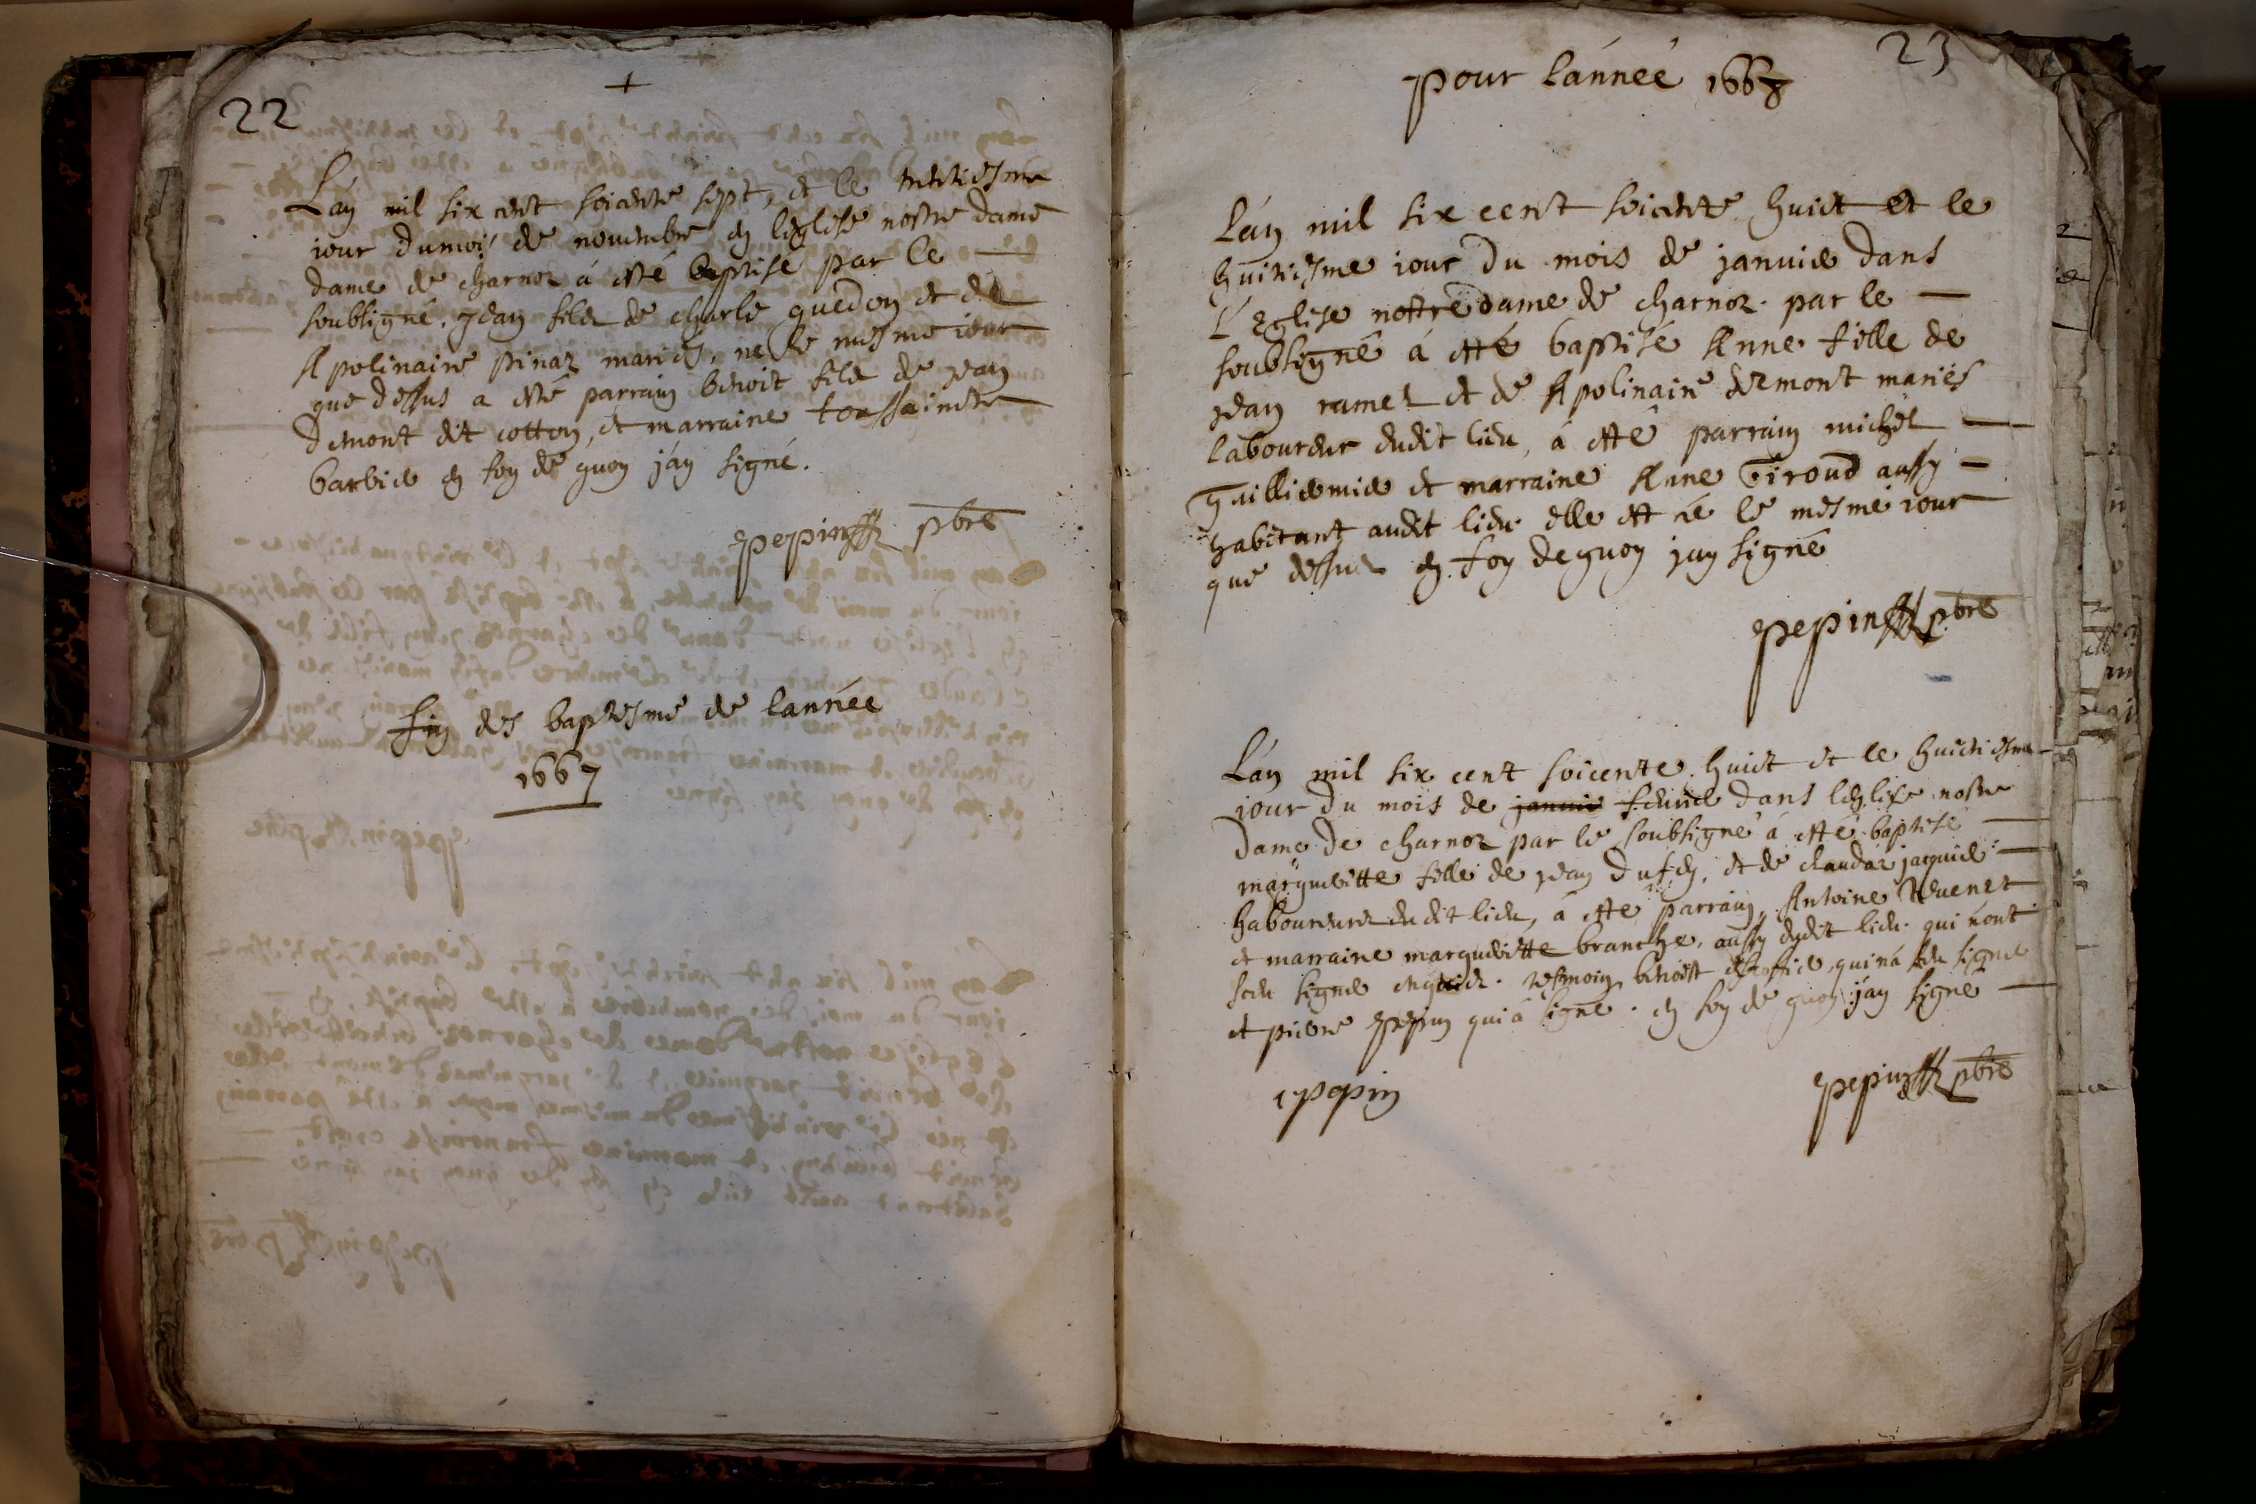 22
+
Lán mil six cent soicente sept, et le trentiesme
iour du mois de novembre en léglise nostre dame
dame de charnoz á esté baptisé par le —
soubsigné. Jean fils de charle guedon et de
Apolinaire pinaz mariés, ne le mesme iour
que dessus a esté parrain benoit fils de jean
demont dit cotton, et marraine toussaincte
barbier en foy de quoy jáy signé.
pepin pbre
fin des baptesme de lannée
1667
23
pour lánneé 1668
Lán mil six cent soicente huict et le
huitiesme iour du mois de janvier dans
L'Eglise nostre dame de charnoz par le —
soubsigné á esté baptisé Anne fille de
jean ramel et de Apolinaire demont mariés
laboureur dudit lieu, á esté parrain michel —
guilliermier et marraine Anne Giroud aussy —
habitant audit lieu elle est né le mesme iour
que dessus en foy de quoy jay signé
pepin pbre
Lán mil six cent soicente huict et le huictiesme —
iour du mois de janvier fevrier dans léglise nostre
dame de charnoz par le soubsigné á esté baptisé —
margueritte fille de jean dufen, et de claudaz jacquier —
laboureurs dudit lieu, á esté parrain Antoine
et marraine margueritte branche, aussy dudit lieu qui nont
sceu signer enquis. tesmoin benoist qui ná sceu signer
et pierre pepin qui á signé. en foy de quoy jáy signé —
pepin
pepin pbre